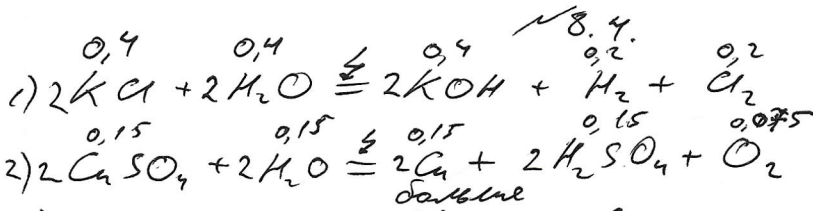 №8.4.
0,4 0,4 0,4 0,2 0,2
1) 2KCl + 2H₂O = 2KOH + H₂ + Cl₂
0,15 0,15 0,15 0,15 0,075
2) 2CuSO₄ + 2H₂O = 2Cu + 2H₂SO₄ + O₂
больше